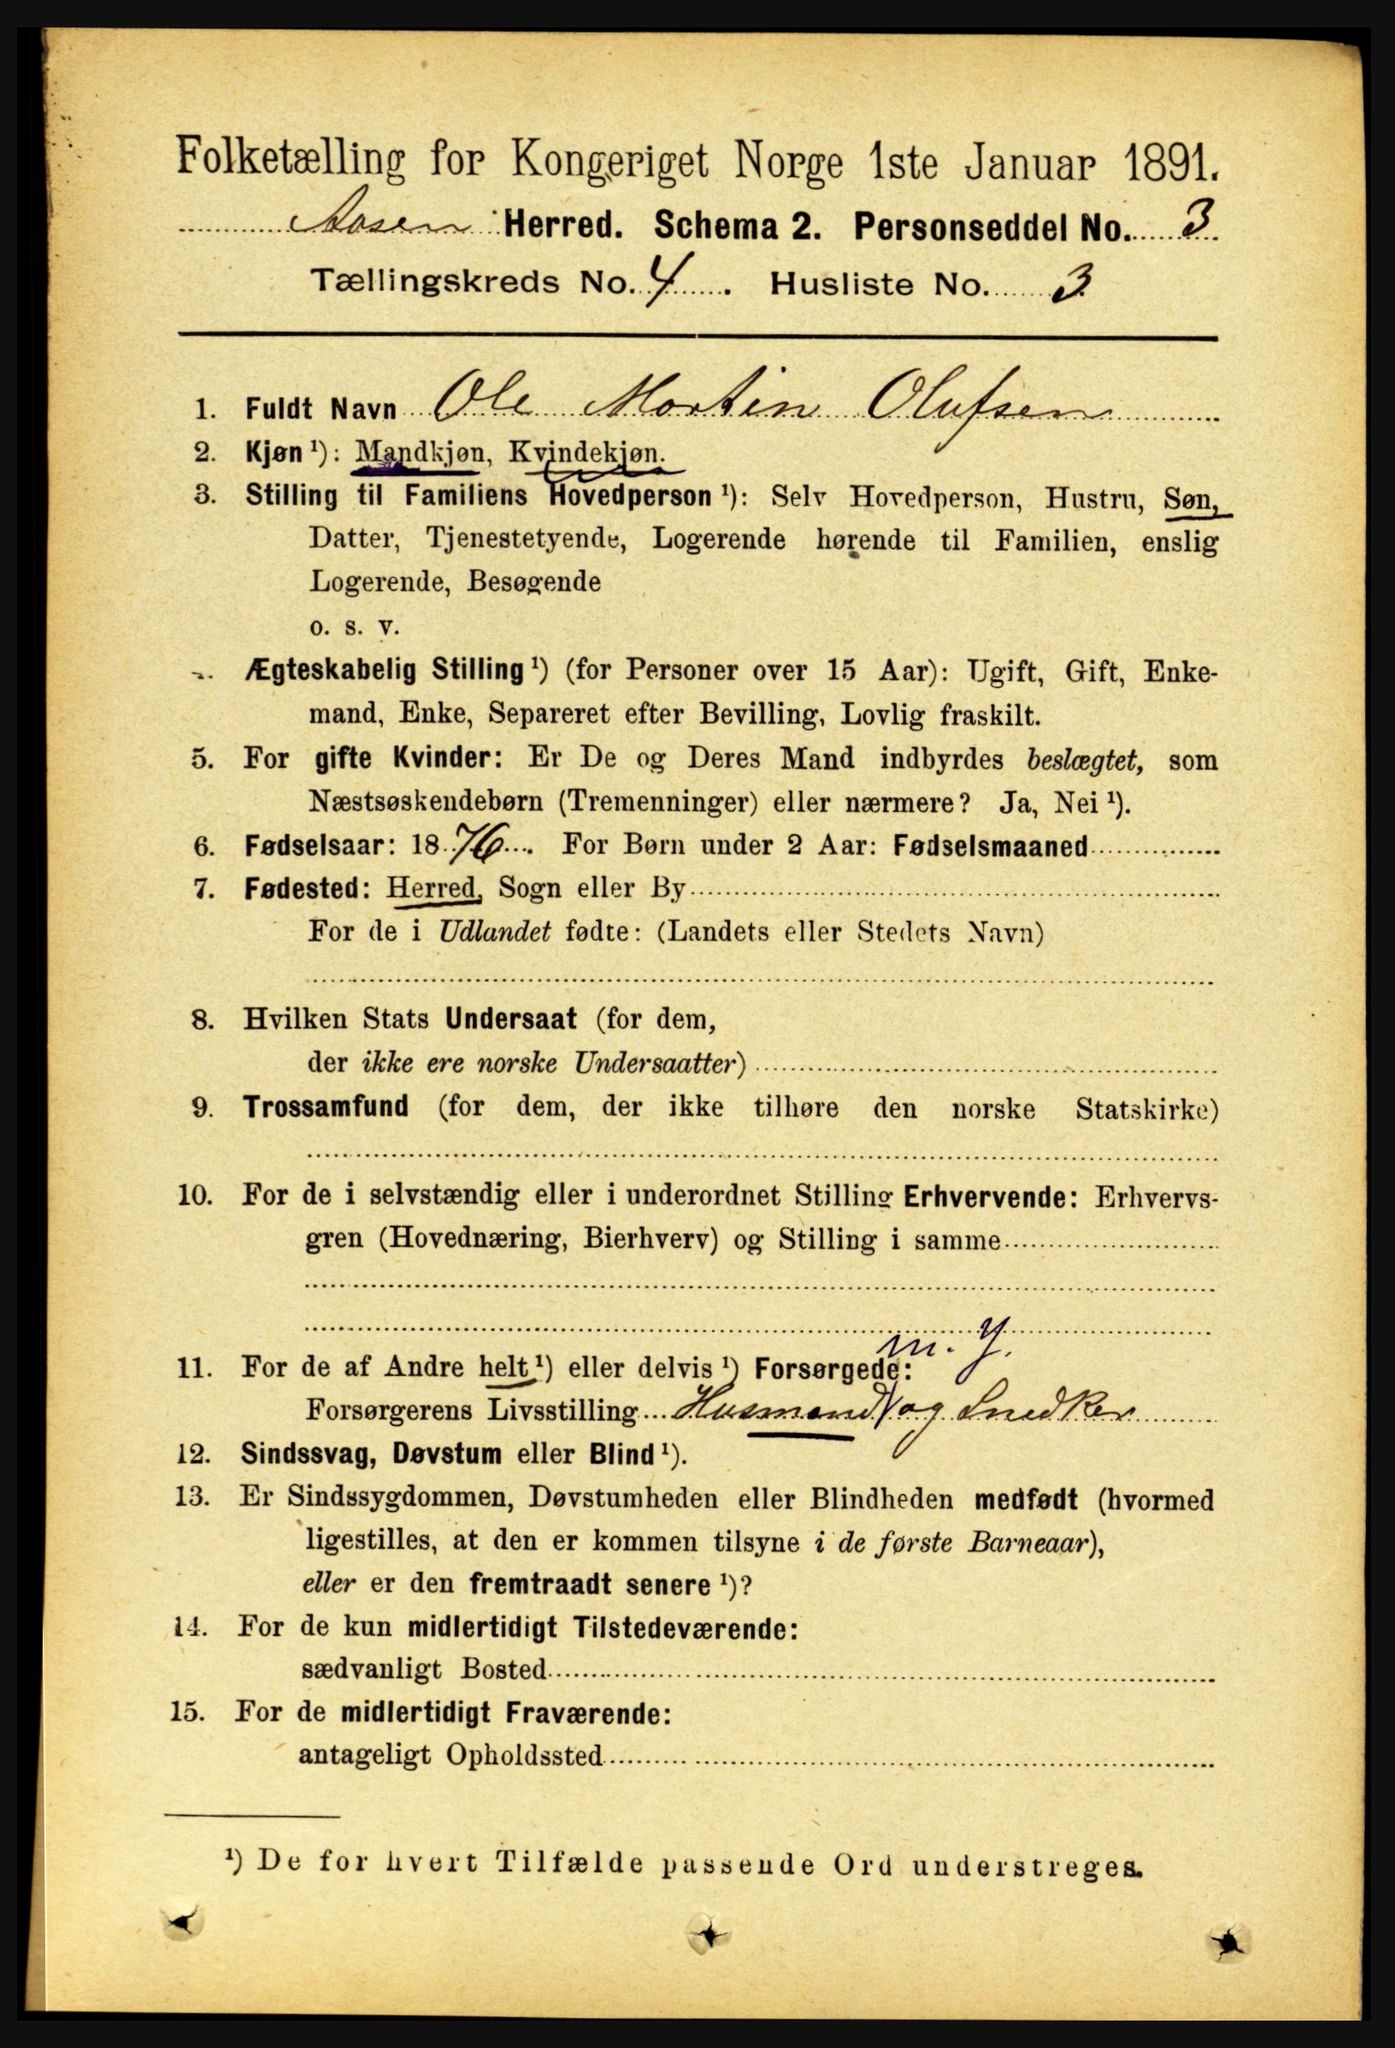 Folketælling for Kongeriget Norge 1ste Januar 1891.
Aasen Herred. Schema 2. Personseddel No. 3
Tællingskreds No. 4. Husliste No. 3
1. Fuldt Navn Ole Martin Olufsen
2. Kjøn ¹): Mandkjøn, Kvindekjøn.
3. Stilling til Familiens Hovedperson ¹): Selv Hovedperson, Hustru, Søn,
Datter, Tjenestetyende, Logerende hørende til Familien, enslig
Logerende, Besøgende
o. s. v.
Ægteskabelig Stilling ¹) (for Personer over 15 Aar): Ugift, Gift, Enke-
mand, Enke, Separeret efter Bevilling, Lovlig fraskilt.
5. For gifte Kvinder: Er De og Deres Mand indbyrdes beslægtet, som
Næstsøskendebørn (Tremenninger) eller nærmere? Ja, Nei ¹).
6. Fødselsaar: 1876. For Børn under 2 Aar: Fødselsmaaned
7. Fødested: Herred, Sogn eller By
For de i Udlandet fødte: (Landets eller Stedets Navn)
8. Hvilken Stats Undersaat (for dem,
der ikke ere norske Undersaatter)
9. Trossamfund (for dem, der ikke tilhøre den norske Statskirke)
10. For de i selvstændig eller i underordnet Stilling Erhvervende: Erhvervs-
gren (Hovednæring, Bierhverv) og Stilling i samme
m. J.
11. For de af Andre helt ¹) eller delvis ¹) Forsørgede:
Forsørgerens Livsstilling Husmand / og Snedker
12. Sindssvag, Døvstum eller Blind ¹).
13. Er Sindssygdommen, Døvstumheden eller Blindheden medfødt (hvormed
ligestilles, at den er kommen tilsyne i de første Barneaar),
eller er den fremtraadt senere ¹)?
14. For de kun midlertidigt Tilstedeværende:
sædvanligt Bosted
15. For de midlertidigt Fraværende:
antageligt Opholdssted
¹) De for hvert Tilfælde passende Ord understreges.